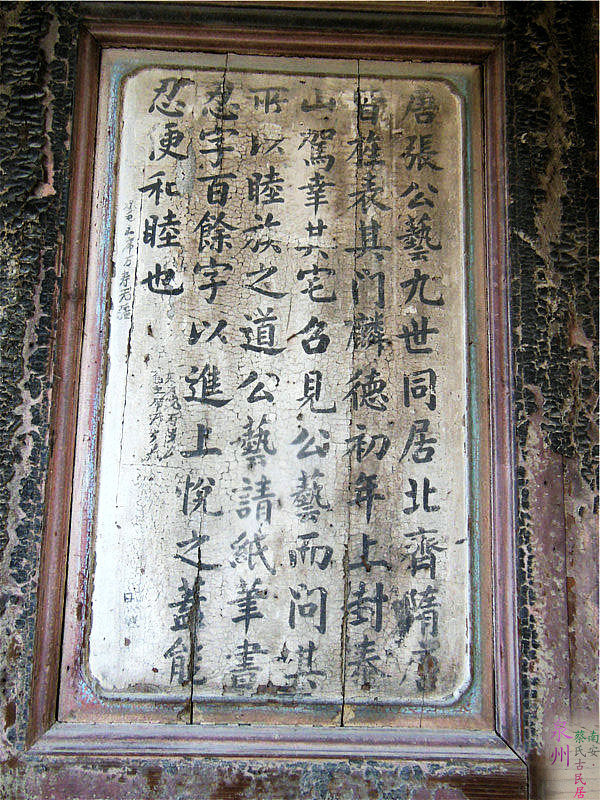 唐張公藝九世同居北齊隋唐
皆旌表其門麟德初年上封泰
山駕幸其宅召見公藝而問其
所以睦族之道公藝請紙筆書
忍字百餘字以進上悅之蓋能
忍更和睦也
泉州
南安·
蔡氏古民居